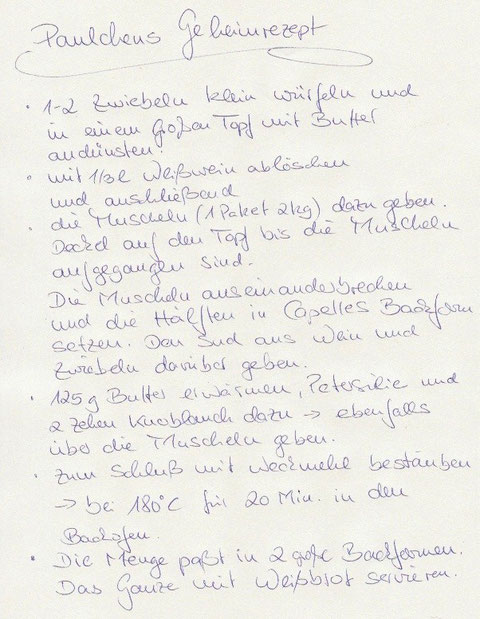 Paulchens Geheimrezept
• 1-2 Zwiebeln klein würfeln und
in einem großen Topf mit Butter
andünsten.
• mit 1/3 l Weißwein ablöschen
und anschließend
• die Muscheln (1 Paket 2kg) dazu geben.
Deckel auf den Topf bis die Muscheln
aufgegangen sind.
Die Muscheln auseinanderbrechen
und die Hälften in Capelles Backform
setzen. Den Sud aus Wein und
Zwiebeln darüber geben.
• 125 g Butter erwärmen, Petersilie und
2 Zehen Knoblauch dazu → ebenfalls
über die Muscheln geben.
• Zum Schluß mit Weckmehl bestäuben
→ bei 180°C für 20 Min. in den
Backofen.
• Die Menge paßt in 2 große Backformen.
Das Ganze mit Weißbrot servieren.